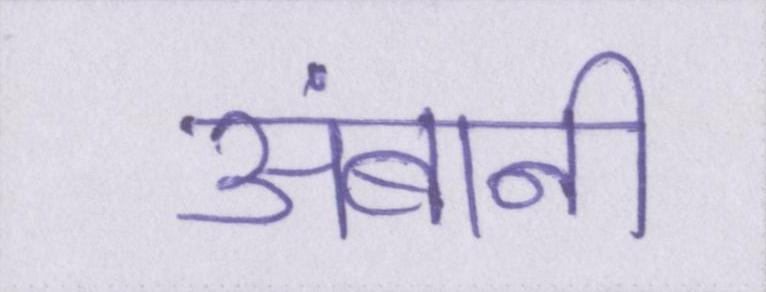 अंबानी